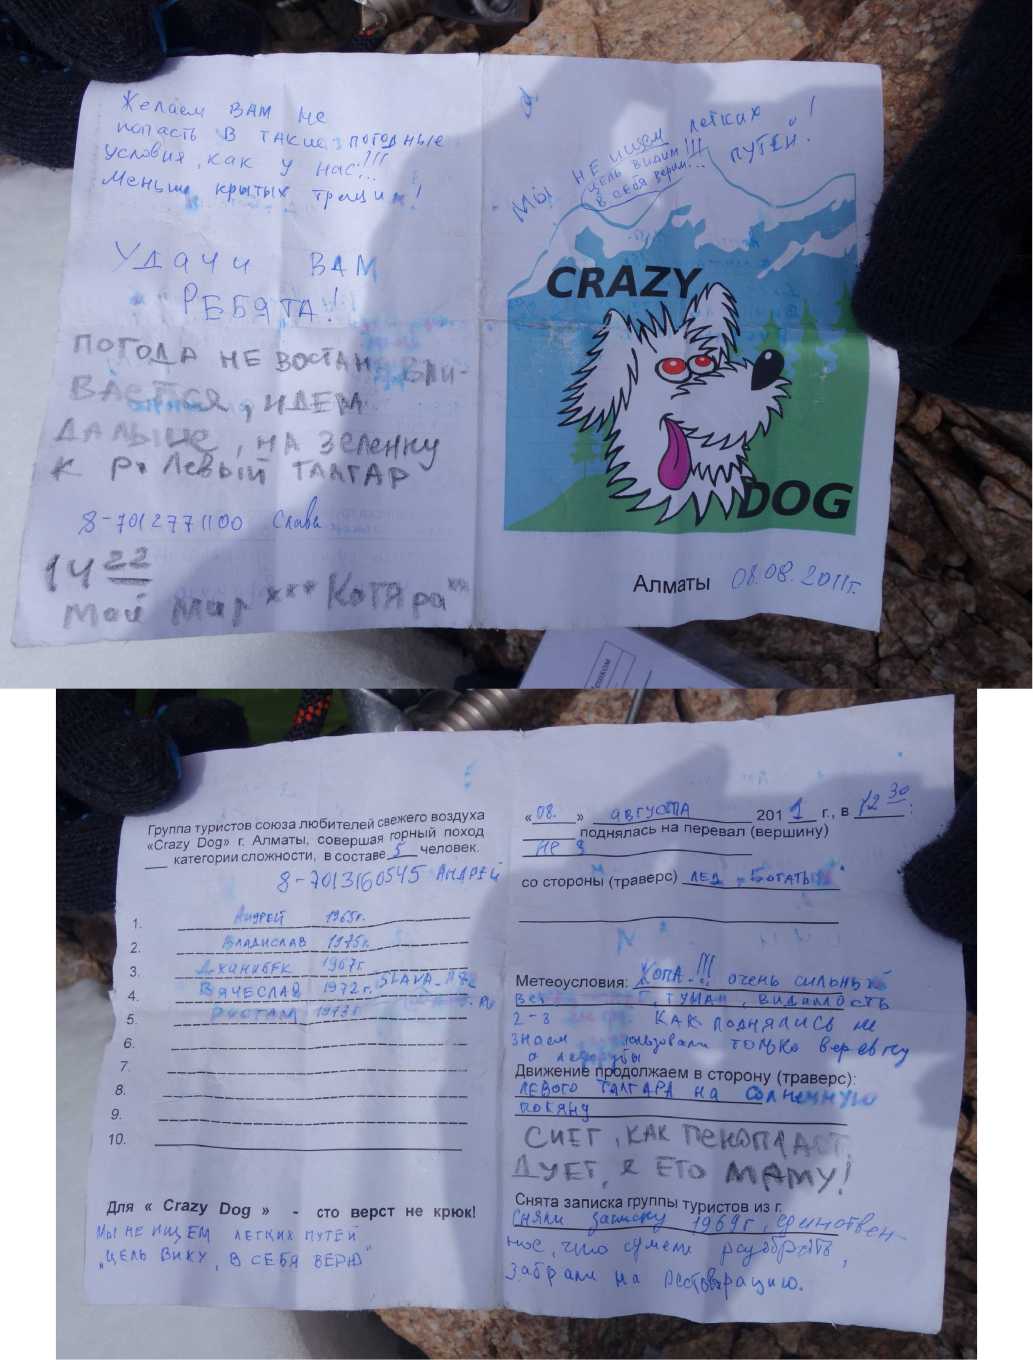 Желаем ВАМ не
попасть в такие погодные
условия, как у нас!!!
Меньше крытых трещин!
УДАЧИ ВАМ
РЕБЯТА!
ПОГОДА НЕ ВОСТАН ВЛИ-
ВАЕТСЯ, ИДЕМ
ДАЛЬШЕ, НА ЗЕЛЕНКУ
К р. ЛЕВЫЙ ТАЛГАР
8-7012771100 Слава
14 22
Мой Мир *** Котяра***
МЫ НЕ ИЩЕМ ЛЕГКИХ ПУТЕЙ!
ЦЕЛЬ ВИДИМ!!!
В СЕБЯ ВЕРИМ...
CRAZY
DOG
Алматы 08.08.2011г.
Группа туристов союза любителей свежего воздуха
«Crazy Dog» г. Алматы, совершая горный поход
___ категории сложности, в составе 5 человек.
8-7013160545 АНДРЕЙ
1. АНДРЕЙ 1965г.
2. ВЛАДИСЛАВ 1975г.
3. ДЖАНИБЕК 1967г.
4. ВЯЧЕСЛАВ 1972г. SLAVA
5. РУСТАМ 1973г. .RU
6.
7.
8.
9.
10.
Для « Crazy Dog » - сто верст не крюк!
МЫ НЕ ИЩЕМ ЛЕГКИХ ПУТЕЙ
"ЦЕЛЬ ВИЖУ, В СЕБЯ ВЕРЮ"
«08.» АВГУСТА 2011 г., в 12 30 :
поднялась на перевал (вершину)
НЕ
со стороны (траверс) ЛЕД. БОГАТЫРЬ
Метеоусловия: ЖОПА!!! очень сильный
ветер, ТУМАН, ВИДИМОСТЬ
2-3 КАК ПОДНЯЛИСЬ не
знаем использовали ТОЛЬКО веревку
и ледорубы
Движение продолжаем в сторону (траверс):
ЛЕВОГО ТАЛГАРА НА СОЛНЕЧНУЮ
ПОЛЯНУ
СНЕГ, КАК ПЕНОПЛАСТ
ДУЕТ, Я ЕГО МАМУ!
Снята записка группы туристов из г.
Сняли записку 1969г, единствен-
ное, что сумели разобрать,
забрали на реставрацию.